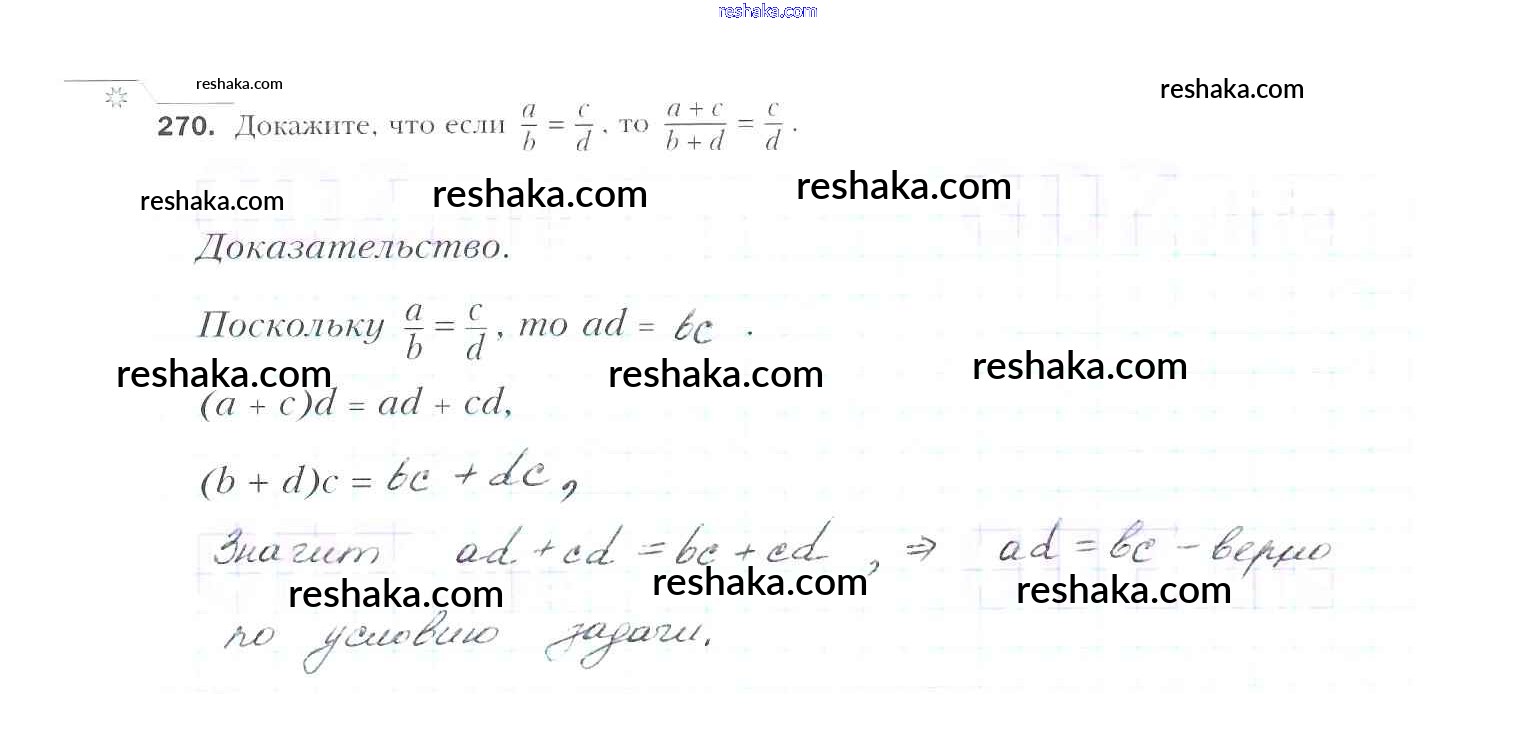 reshaka.com
reshaka.com
reshaka.com
270. Докажите, что если a/b = c/d, то (a + c)/(b + d) = c/d.
reshaka.com reshaka.com reshaka.com
Доказательство.
Поскольку a/b = c/d, то ad = bc .
reshaka.com reshaka.com reshaka.com
(a + c)d = ad + cd,
(b + d)c = bc + dc,
Значит ad + cd = bc + cd, ⇒ ad = bc – верно
reshaka.com reshaka.com reshaka.com
по условию задачи.